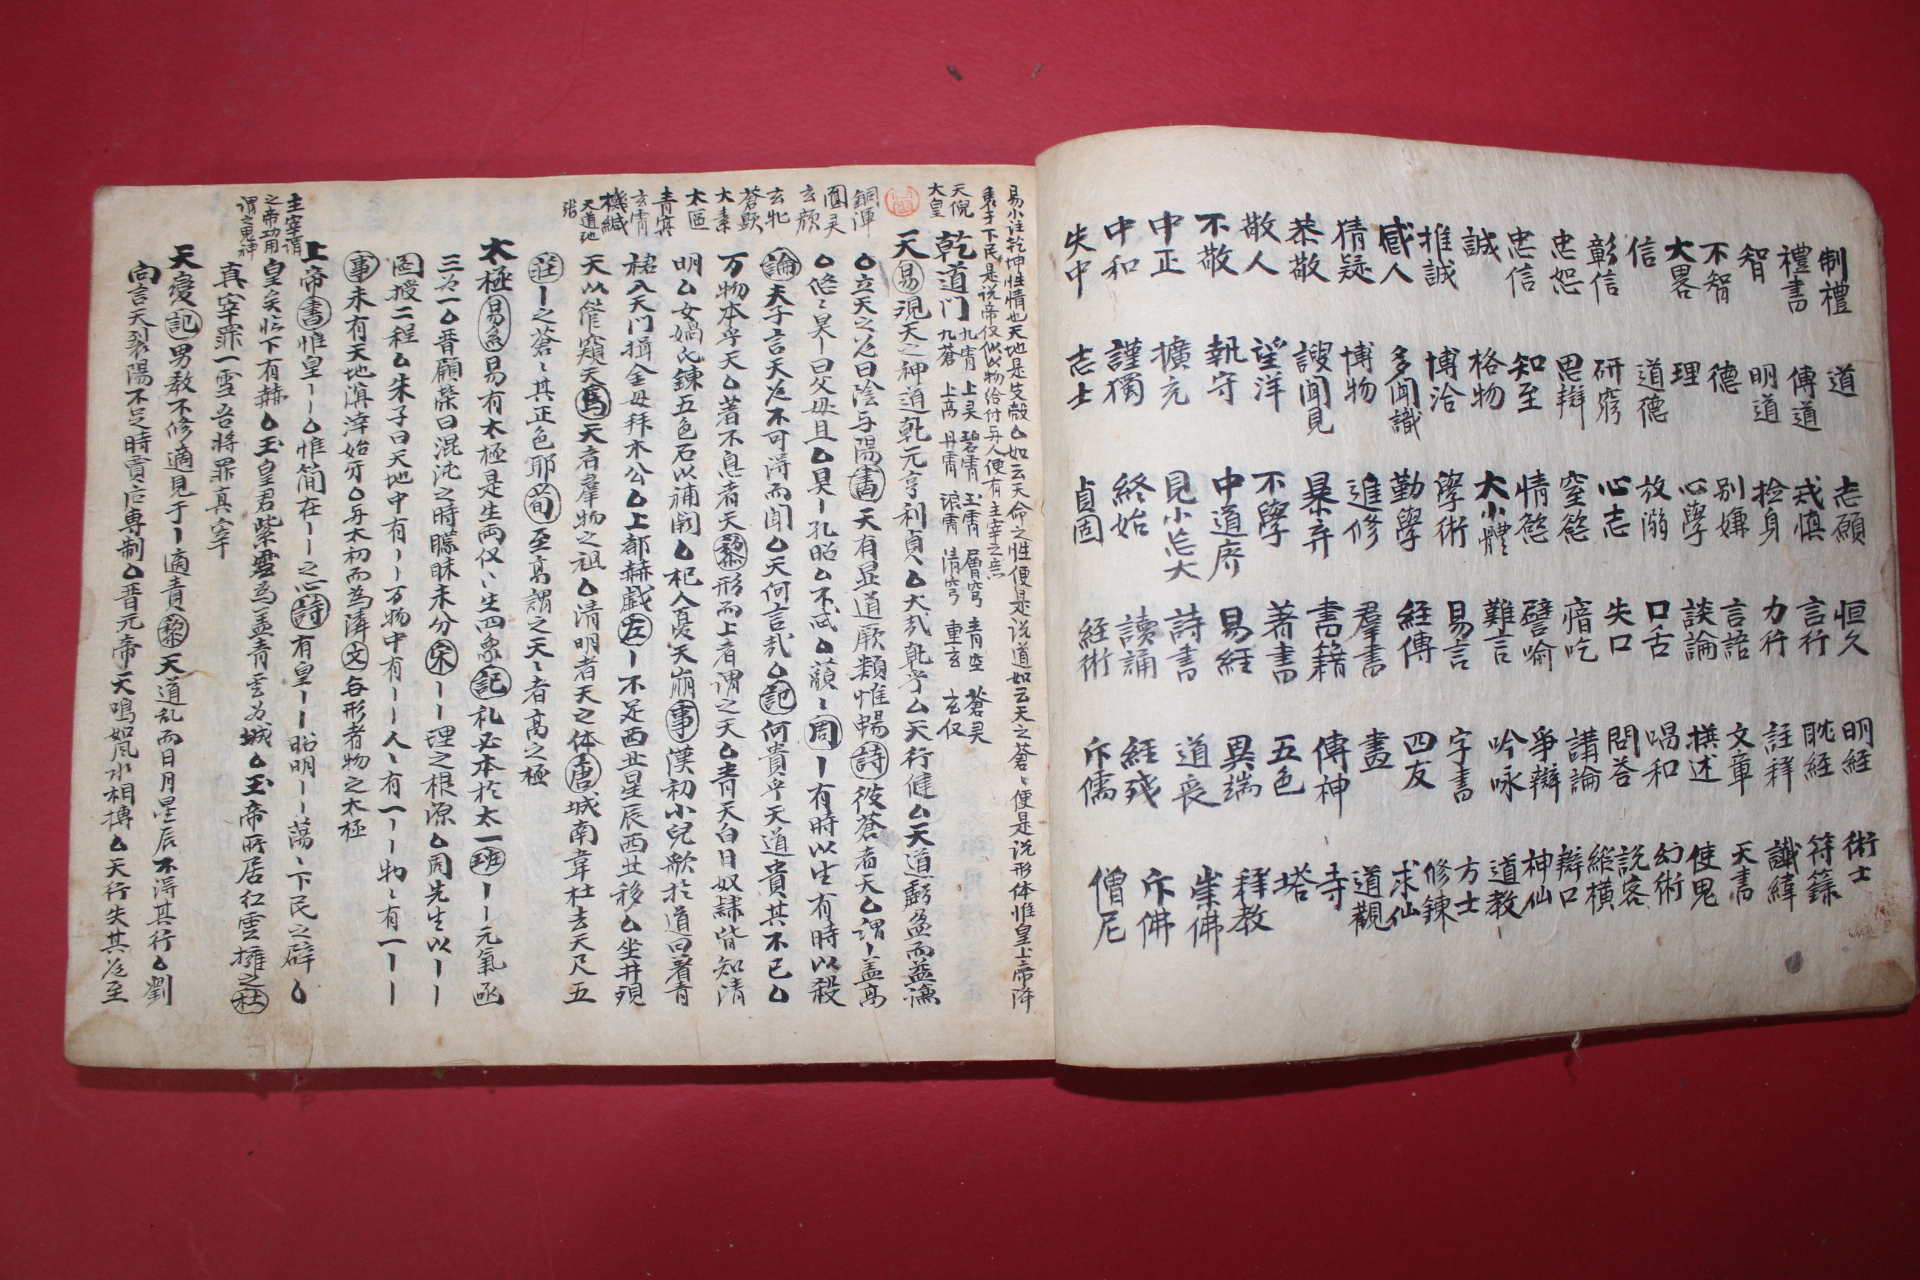 制禮
禮書
智
不智
大畧
信
彰信
忠恕
忠信
誠
推誠
感人
猜疑
恭敬
敬人
不敬
中正
中和
失中
道
傳道
明道
德
理
道德
研窮
思辯
知至
格物
博洽
多聞識
博物
謏聞見
望洋
執守
擴充
謹獨
志士
志願
戒慎
捡身
别嫌
心學
放溺
心志
窒慾
情慾
大小體
學術
勤學
進修
暴弃
不學
中道廢
見小忘大
終始
貞固
恒久
言行
力行
言語
談論
口舌
失口
瘖吃
譬喻
難言
易言
經傳
羣書
書籍
著書
易經
詩書
讀誦
経術
明経
耽経
註释
文章
撰述
唱和
問答
講論
爭辯
吟咏
字書
四友
畫
傳神
五色
異端
道丧
経残
斥儒
術士
符籙
讖緯
天書
使鬼
幻術
説客
縱横
辯口
神仙
道教
方士
修錬
求仙
道觀
寺
塔
释教
崇佛
斥佛
僧尼
易小注乾坤性情也天地是皮殼厶如云天命之性便是说道如云天之蒼〻便是说形体惟皇上帝降
衷于下民是说帝便有主宰之意
天倪
大皇
乾道门
九霄 上昊 碧霄 玉霄 層穹 青空 蒼昊
九蒼 上高 丹霄 琅霄 清穹 重玄 玄仪
天易观天之神道乾元亨利貞厶大㢤乾乎厶天行健厶天道虧盈而益谦
銅渾
圎灵
玄颜
玄牝
蒼顥
大素
太區
青冥
玄宵
機緘
天道地
立天之道曰陰与陽書天有显道厥類惟畼詩彼蒼者天厶谓丨盖高
悠〻昊丨曰父母且厶昊丨孔昭厶不忒厶藐〻丨周丨有時以生有時以殺
論夫子言天道不可淂而闻厶天何言㢤厶記何貴乎天道貴其不已厶
万物本乎天厶著不息者天黎形而上者谓之天厶青天白日奴隷皆知清
明厶女媧氏錬五色石以補闕厶杞人憂天崩事漢初小兒歌於道曰着青
裙入天门揖金母拜木公厶上都赫戯左丨不足西北星辰西北移厶坐井觀
天以管窺天馬天者羣物之祖厶清明者天之体唐城南韋杜去天尺五
莊丨之蒼〻其正色耶荀至高謂之天〻者高之極
太極易系易有太極是生兩仪〻生四象記礼必本於太一班丨丨元氣函
三为一厶晋顧榮曰混沌之時矇昧未分宋丨丨理之根源厶周先生以丨丨
圖授二程厶朱子曰天地中有丨丨万物中有丨丨人〻有一丨丨物〻有一丨丨
事未有天地溟涬始牙厶再太初而為隣文各形者物之太極
上帝書惟皇丨丨厶惟简在丨丨之心詩有皇丨丨昭明丨丨蕩〻下民之辟厶
主宰谓
之帝功用
谓之鬼神
皇矣临下有赫厶玉皇君紫雲為盖青雲为城厶玉帝所居红雲擁之杜
真宰罪一雪吾将罪真宰
天變記男教不修適見于丨適青黎天道乱而日月星辰不淂其行厶劉
向言天裂陽不足時賈后専制厶晋元帝天鳴如风水相搏厶天行失其道至